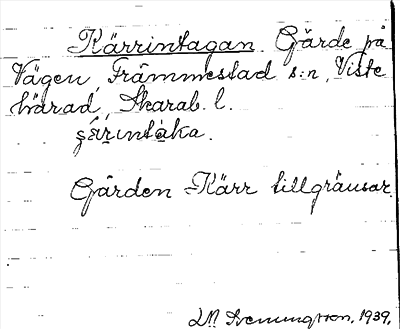 Kärrintagan. Gärde på
Vägen, Främmestad s:n, Viste
härad, Skarab. l.
şä́ri̱ntàka.
Gården Kärr tillgränsar.
1939.